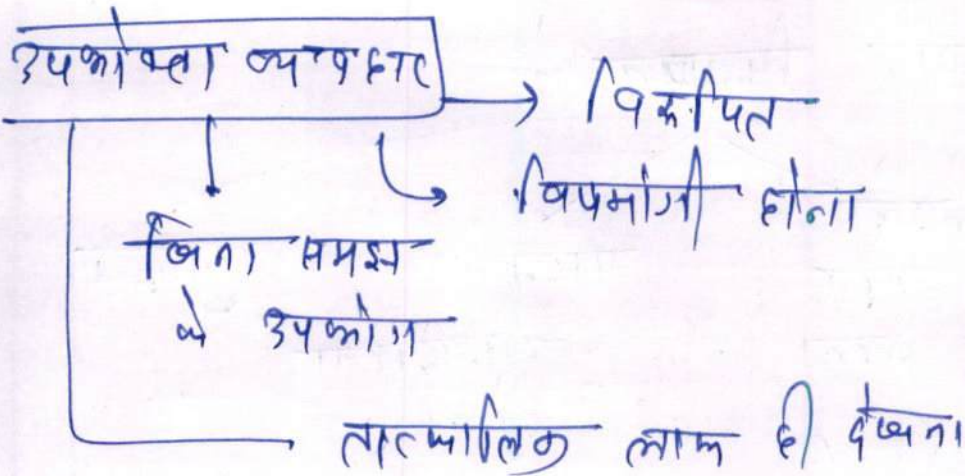 उपभोक्ता व्यवहार
विरूपित
उपभोगी होना
बिना समझ
के उपभोग
तात्कालिक लाभ ही देखना